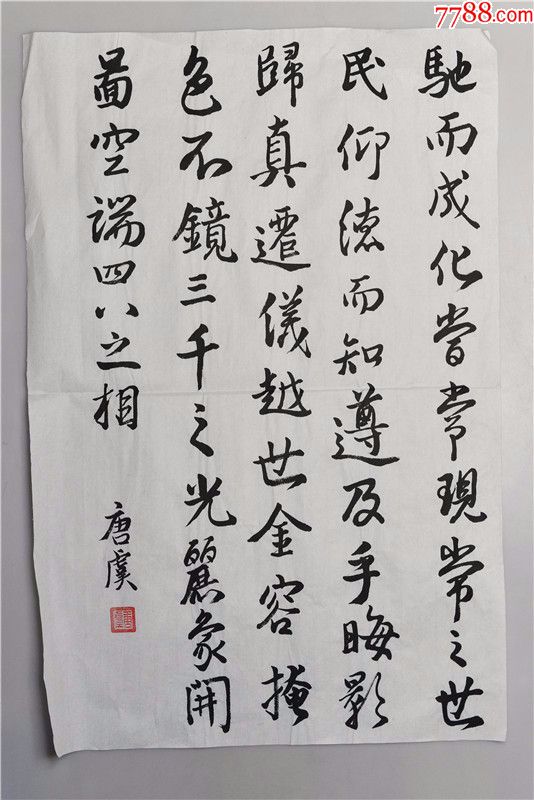 7788.com
馳而成化當常現常之世
民仰德而知遵及乎晦影
歸真遷儀越世金容掩
色不鏡三千之光麗象開
啚空端四八之相
唐虞